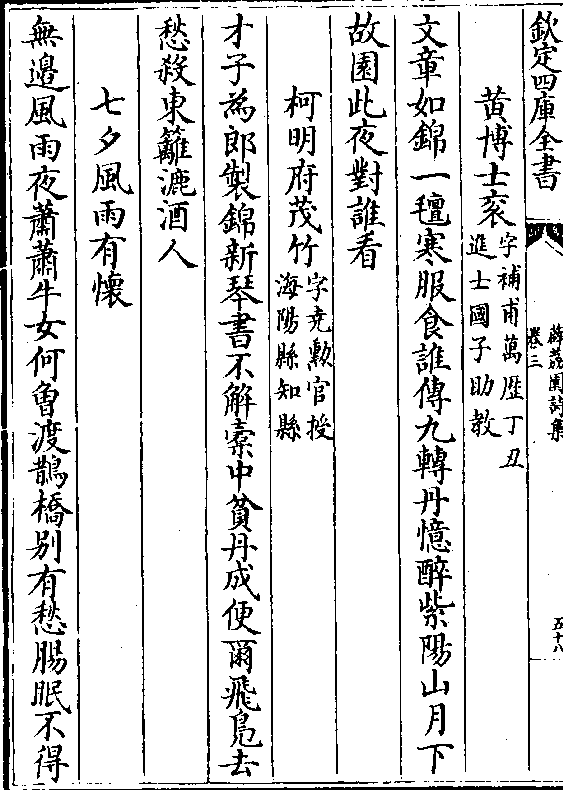 欽定四庫全書
薜荔園詩集
卷三
五十八
黄博士衮字補甫萬歴丁丑進士國子助教
文章如錦一氊寒服食誰傳九轉丹憶醉紫陽山月下
故園此夜對誰看
柯明府茂竹字尭勲官授海陽縣知縣
才子為郎製錦新琴書不解槖中貧丹成便爾飛鳬去
愁殺東籬漉酒人
七夕風雨有懷
無邉風雨夜蕭蕭牛女何曾渡鵲橋别有愁腸眠不得